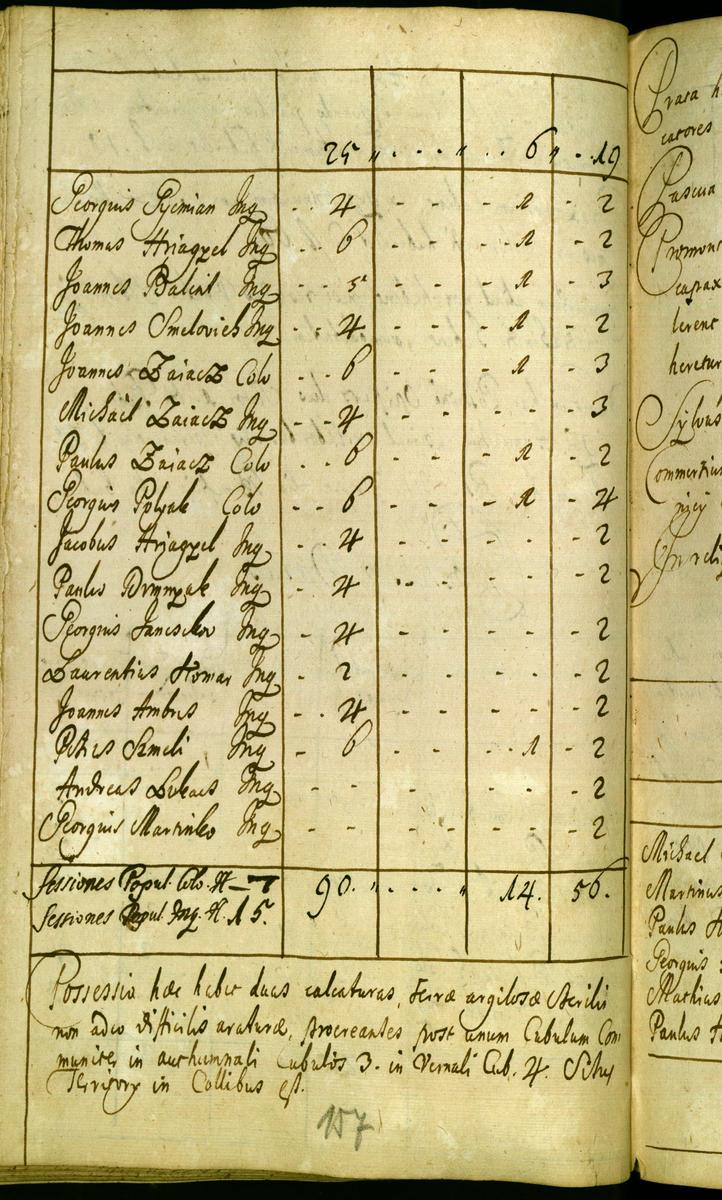 25 „ . . . „ . . 6 „ - . 19
Georgius Gyimian Inq - . 4 - - - 1 - 2
Thomas Hriagyel Inq - . 6 - - - 1 - 2
Joannes Balint Inq - . 5 - - - 1 - 3
Joannes Smelovich Inq - - 4 - - - 1 - 2
Joannes Zaiacz Colo . . 6 - - - 1 - 3
Michael Zaiacz Inq - - 4 - - - - - 3
Paulus Zaiacz Colo . . 6 - - - 1 - 2
Georgius Polyak Colo - - 6 - - - 1 - 4
Jacobus Hriagyel Inq - 4 - - - - - 2
Paulus Inq - 4 - - - - - 2
Georgius Jancsikov Inq - 4 - - - - - 2
Laurentius Homar Inq - 2 - - - - - 2
Joannes Ambrus Inq - . 4 - - - - - 2
Petrus Szmeli Inq - 6 - - - 1 - 2
Andreas Lukacs Inq - - - - - - - 2
Georgius Martinko Inq - - - - - - - 2
Sessiones Popul. Colo. H – 7 90 . „ . . . . „ 14. 56.
Sessiones Popul. Inq. H. 15.
Possessio hæc habet duas calcaturas, terræ argilosæ sterilis
non adeo difficilis araturæ, procreantes post unum Cubulum Com
muniter in authumnali Cubulos 3. in Vernali Cub. 4. Situs
Territory in Collibus est.
157
Prata h
catores
Pascua
Promont
capax
lirent
heretur
Sylvas
Commertium
Michael
Martinus
Paulus H
Georgius
Mathias
Paulus H